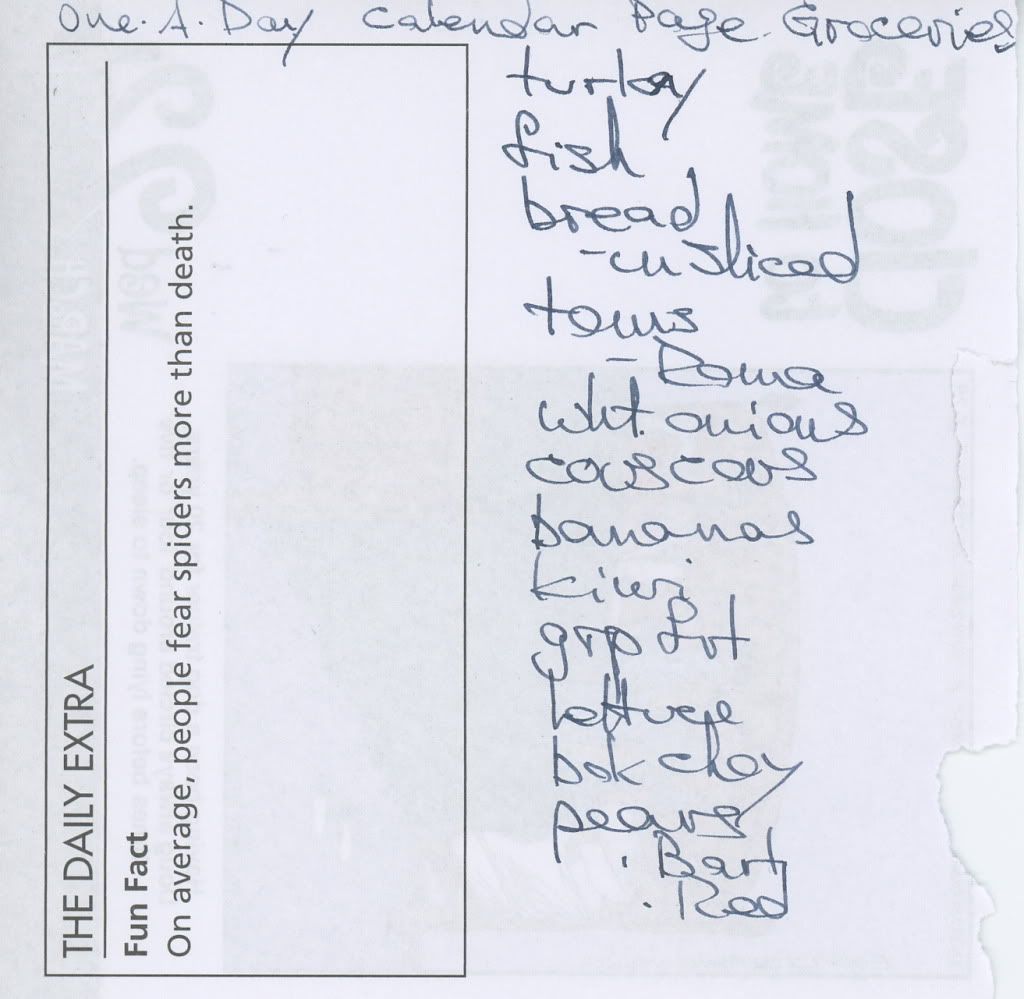 One. A. Day Calendar Page. Groceries
turkey
fish
bread
- unsliced
toms
- Roma
wht. onions
couscous
bananas
kiwi
grp frt
lettuce
bok choy
pears
. Bart
. Red
THE DAILY EXTRA
Fun Fact
On average, people fear spiders more than death.